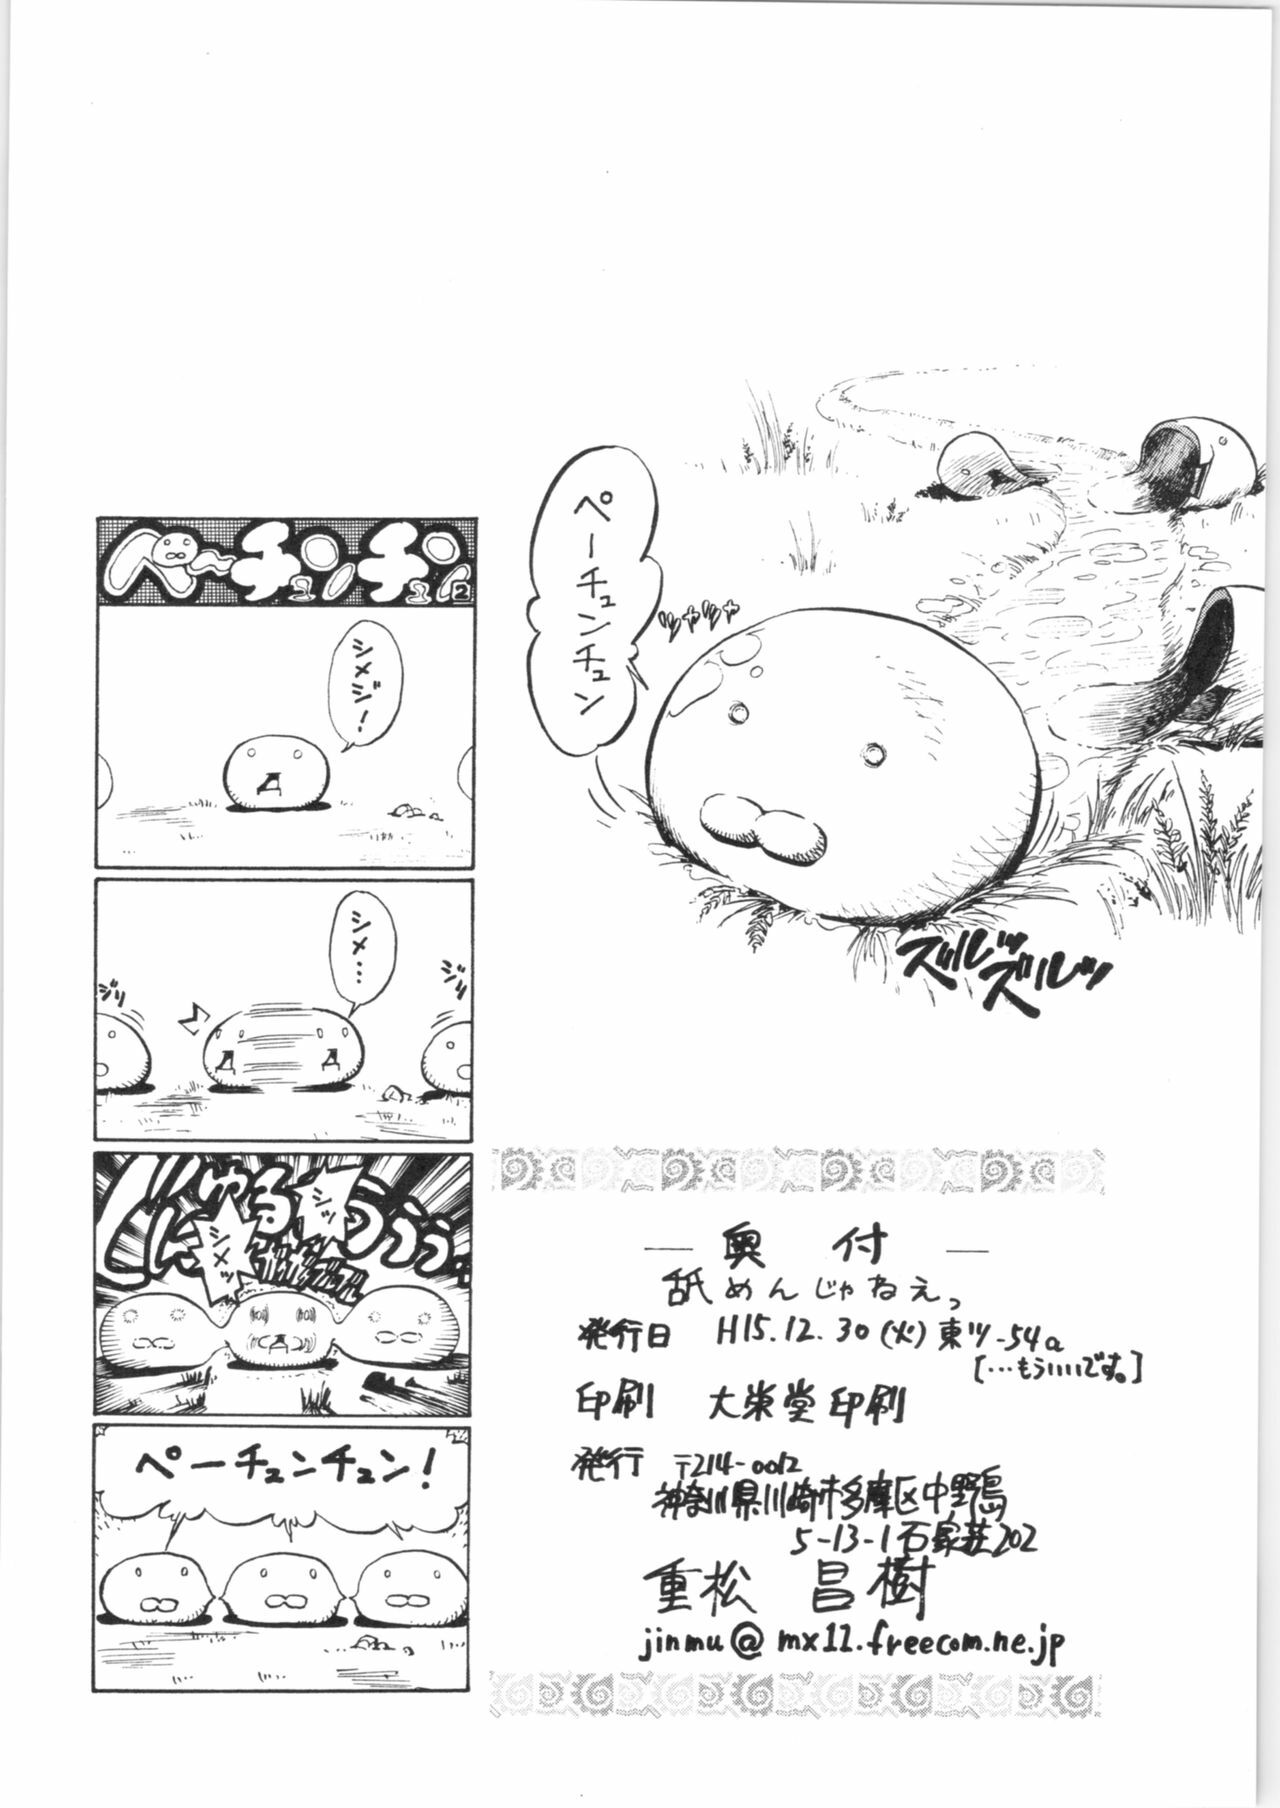 ペーチュンチュン
ツヤツヤ
ズルッ
ズルッ
ペーチュンチュン2
シメジ!
シメ…
ジリ
ジリ
シメッ
シッ
ペーチュンチュン!
― 奥付 ―
舐めんじゃねえっ
発行日 H15.12.30(火)東ツ-54a
[…もういいです。]
印刷 大栄堂印刷
発行 〒214-0012
神奈川県川崎市多摩区中野島
5-13-1石家荘202
重松 昌樹
jinmu@mx12.freecom.ne.jp